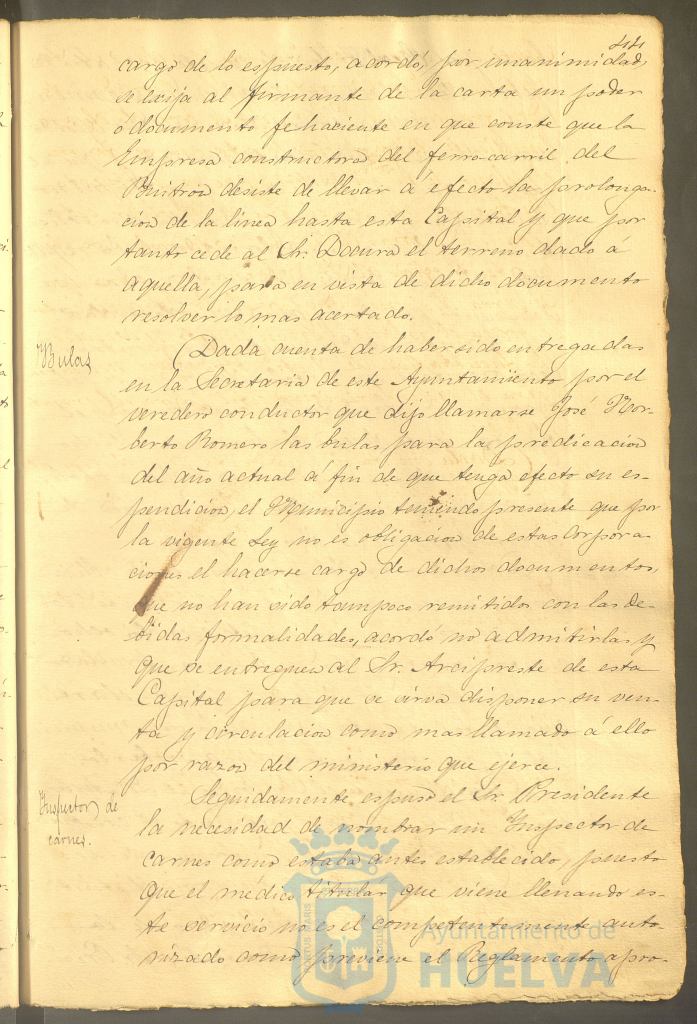 44
cargo de lo espuesto, acordó, por unanimidad,
se exija al firmante de la carta un poder
ó documento fehaciente en que conste que la
Empresa constructora del ferro-carril del
Buitron desiste de llevar á efecto la prolonga-
cion de la linea hasta esta Capital y que por
tanto cede al Sr. el terreno dado á
aquella, para en vista de dicho documento
resolver lo mas acertado.
Bulas
Dada cuenta de haber sido entregadas
en la Secretaria de este Ayuntamiento por el
veredero conductor que dijo llamarse José Nor-
berto Romero las bulas para la predicacion
del año actual á fin de que tenga efecto su es-
pendicion, el Municipio teniendo presente que por
la vigente Ley no es obligacion de estas Corpora-
ciones el hacerse cargo de dichos documentos,
que no han sido tampoco remitidos con las de-
bidas formalidades, acordó no admitirlas y
que se entreguen al Sr. Arcipreste de esta
Capital para que se sirva disponer su ven-
ta y circulacion como mas llamado á ello
por razon del ministerio que ejerce.
Inspector de
carnes.
Seguidamente, espuso el Sr. Presidente
la necesidad de nombrar un Inspector de
carnes como estaba antes establecido, puesto
que el médico titular que viene llenando es-
te servicio no es el competentemente auto-
rizado como previene el Reglamento apro-
Ayuntamiento de
HUELVA